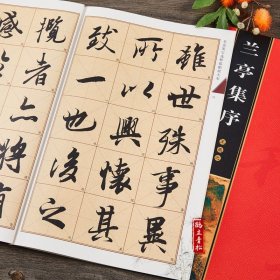 雖世殊事異
所以興懷其
致一也後之
攬者亦將有
兰亭集序